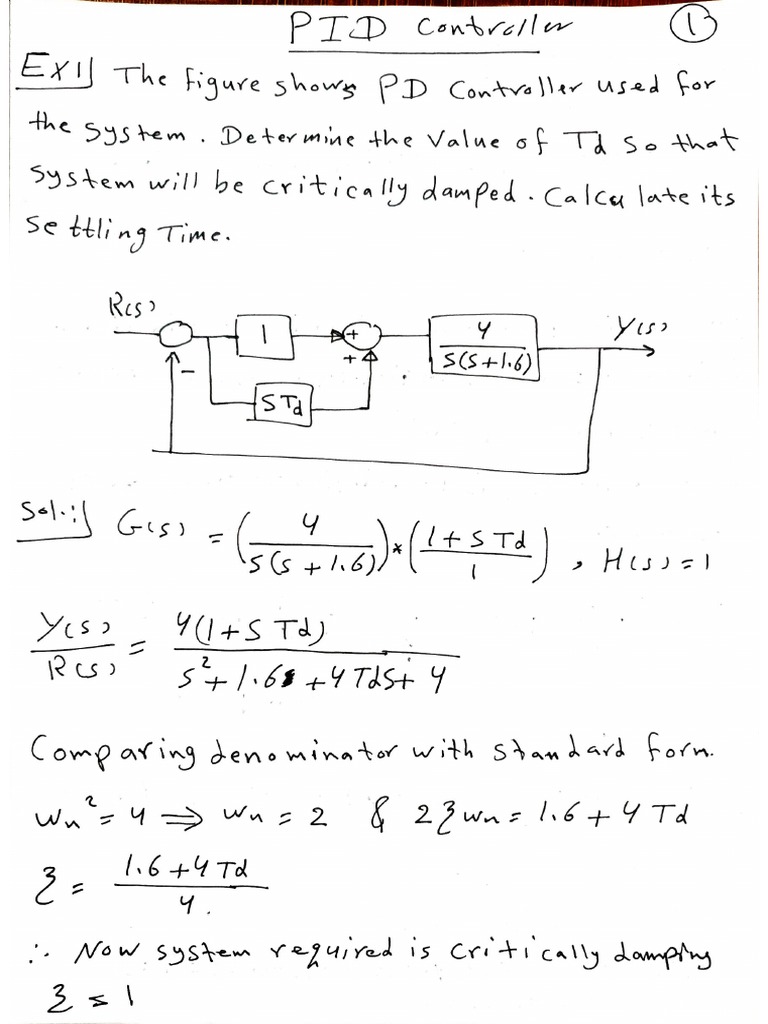 PID Controller
1
EX1 The figure shows PD Controller used for
the system. Determine the Value of Td so that
system will be critically damped. Calculate its
settling Time.
R(s)
1
+
+
4
S(S+1.6)
Y(s)
-
STd
Sol.:
G(s) = (4 / S(S+1.6)) * (1+STd / 1), H(s)=1
Y(s)/R(s) = 4(1+STd) / S²+1.6s+4TdS+4
Comparing denominator with standard form.
Wn²=4 ⇒ Wn=2 & 2ξWn=1.6+4Td
ξ = 1.6+4Td / 4.
∴ Now system required is critically damping
ξ = 1